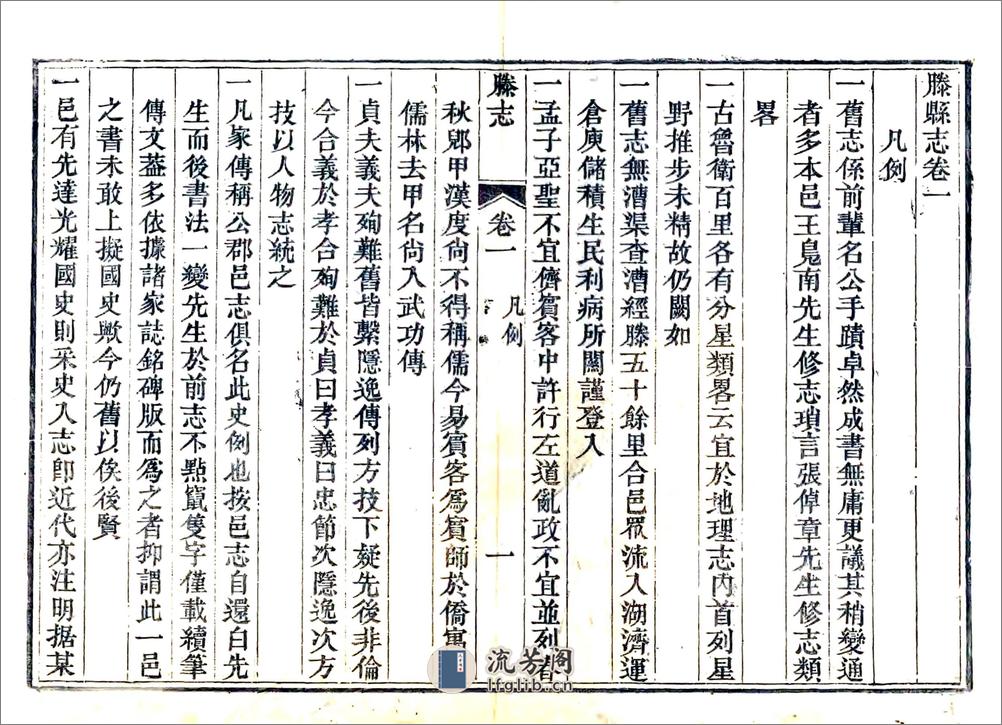 滕縣志卷一
凡例
一舊志係前輩名公手蹟卓然成書無庸更議其稍變通
者多本邑王鳧南先生修志瑣言張倬章先生修志類
畧
一古魯衛百里各有分星類畧云宜於地理志內首列星
野推步未精故仍闕如
一舊志無漕渠查漕經滕五十餘里合邑眾流入湖濟運
倉庾儲積生民利病所關謹登入
一孟子亞聖不宜儕賓客中許行左道亂政不宜並列者
滕志
卷一
凡例
一
秋郳甲漢度尚不得稱儒今易賓客為賓師於僑寓
儒林去甲名尚入武功傳
一貞夫義夫殉難舊皆繫隱逸傳列方技下疑先後非倫
今合義於孝合殉難於貞曰孝義曰忠節次隱逸次方
技以人物志統之
一凡家傳稱公郡邑志俱名此史例也按邑志自還白先
生而後書法一變先生於前志不點竄隻字僅載續筆
傳文葢多依據諸家誌銘碑版而為之者抑謂此一邑
之書未敢上擬國史歟今仍舊以俟後賢
一邑有先達光耀國史則采史入志即近代亦注明据某
流芳阁
lfglib.cn